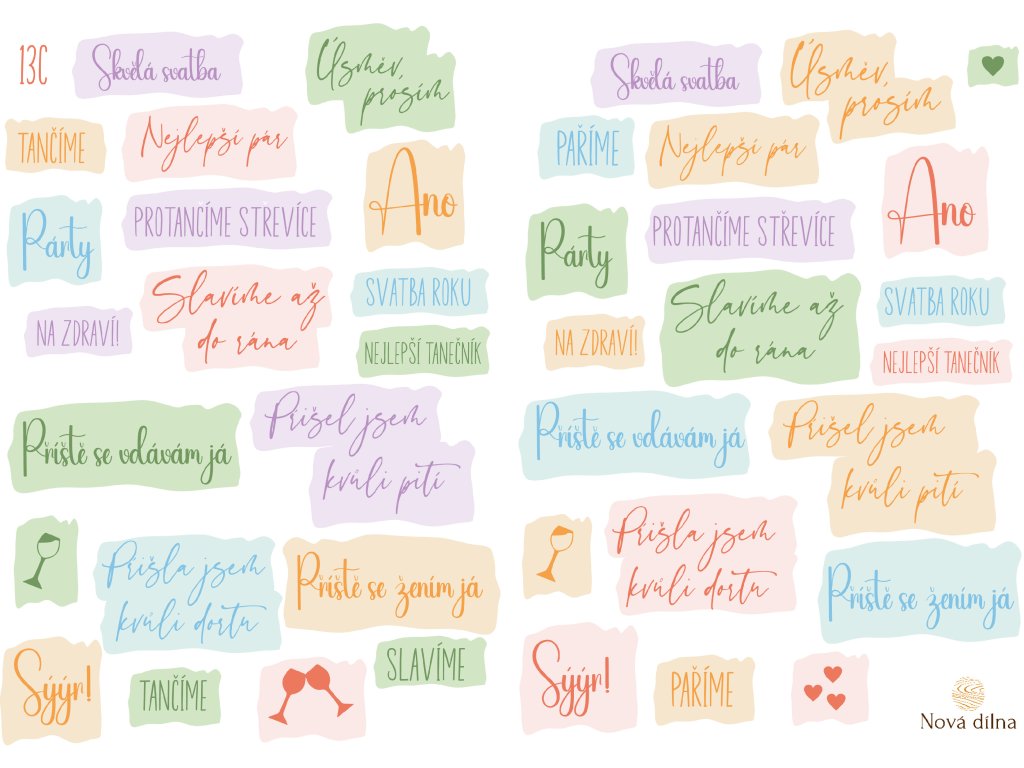 13C
Skvělá svatba
Úsměv,
prosím
TANČÍME
Nejlepší pár
Ano
Párty
PROTANCÍME STREVÍCE
SVATBA ROKU
NA ZDRAVÍ!
Slavíme až
do rána
NEJLEPŠÍ TANEČNÍK
Příště se vdávám já
Přišel jsem
kvůli pití
Přišla jsem
kvůli dortu
Příště se žením já
Sýýr!
TANČÍME
SLAVÍME
Skvělá svatba
Úsměv,
prosím
PAŘÍME
Nejlepší pár
Ano
Párty
PROTANČÍME STŘEVÍCE
SVATBA ROKU
NA ZDRAVÍ!
Slavíme až
do rána
NEJLEPŠÍ TANEČNÍK
Příště se vdávám já
Přišel jsem
kvůli pití
Přišla jsem
kvůli dortu
Příště se žením já
Sýýr!
PAŘÍME
Nová dílna